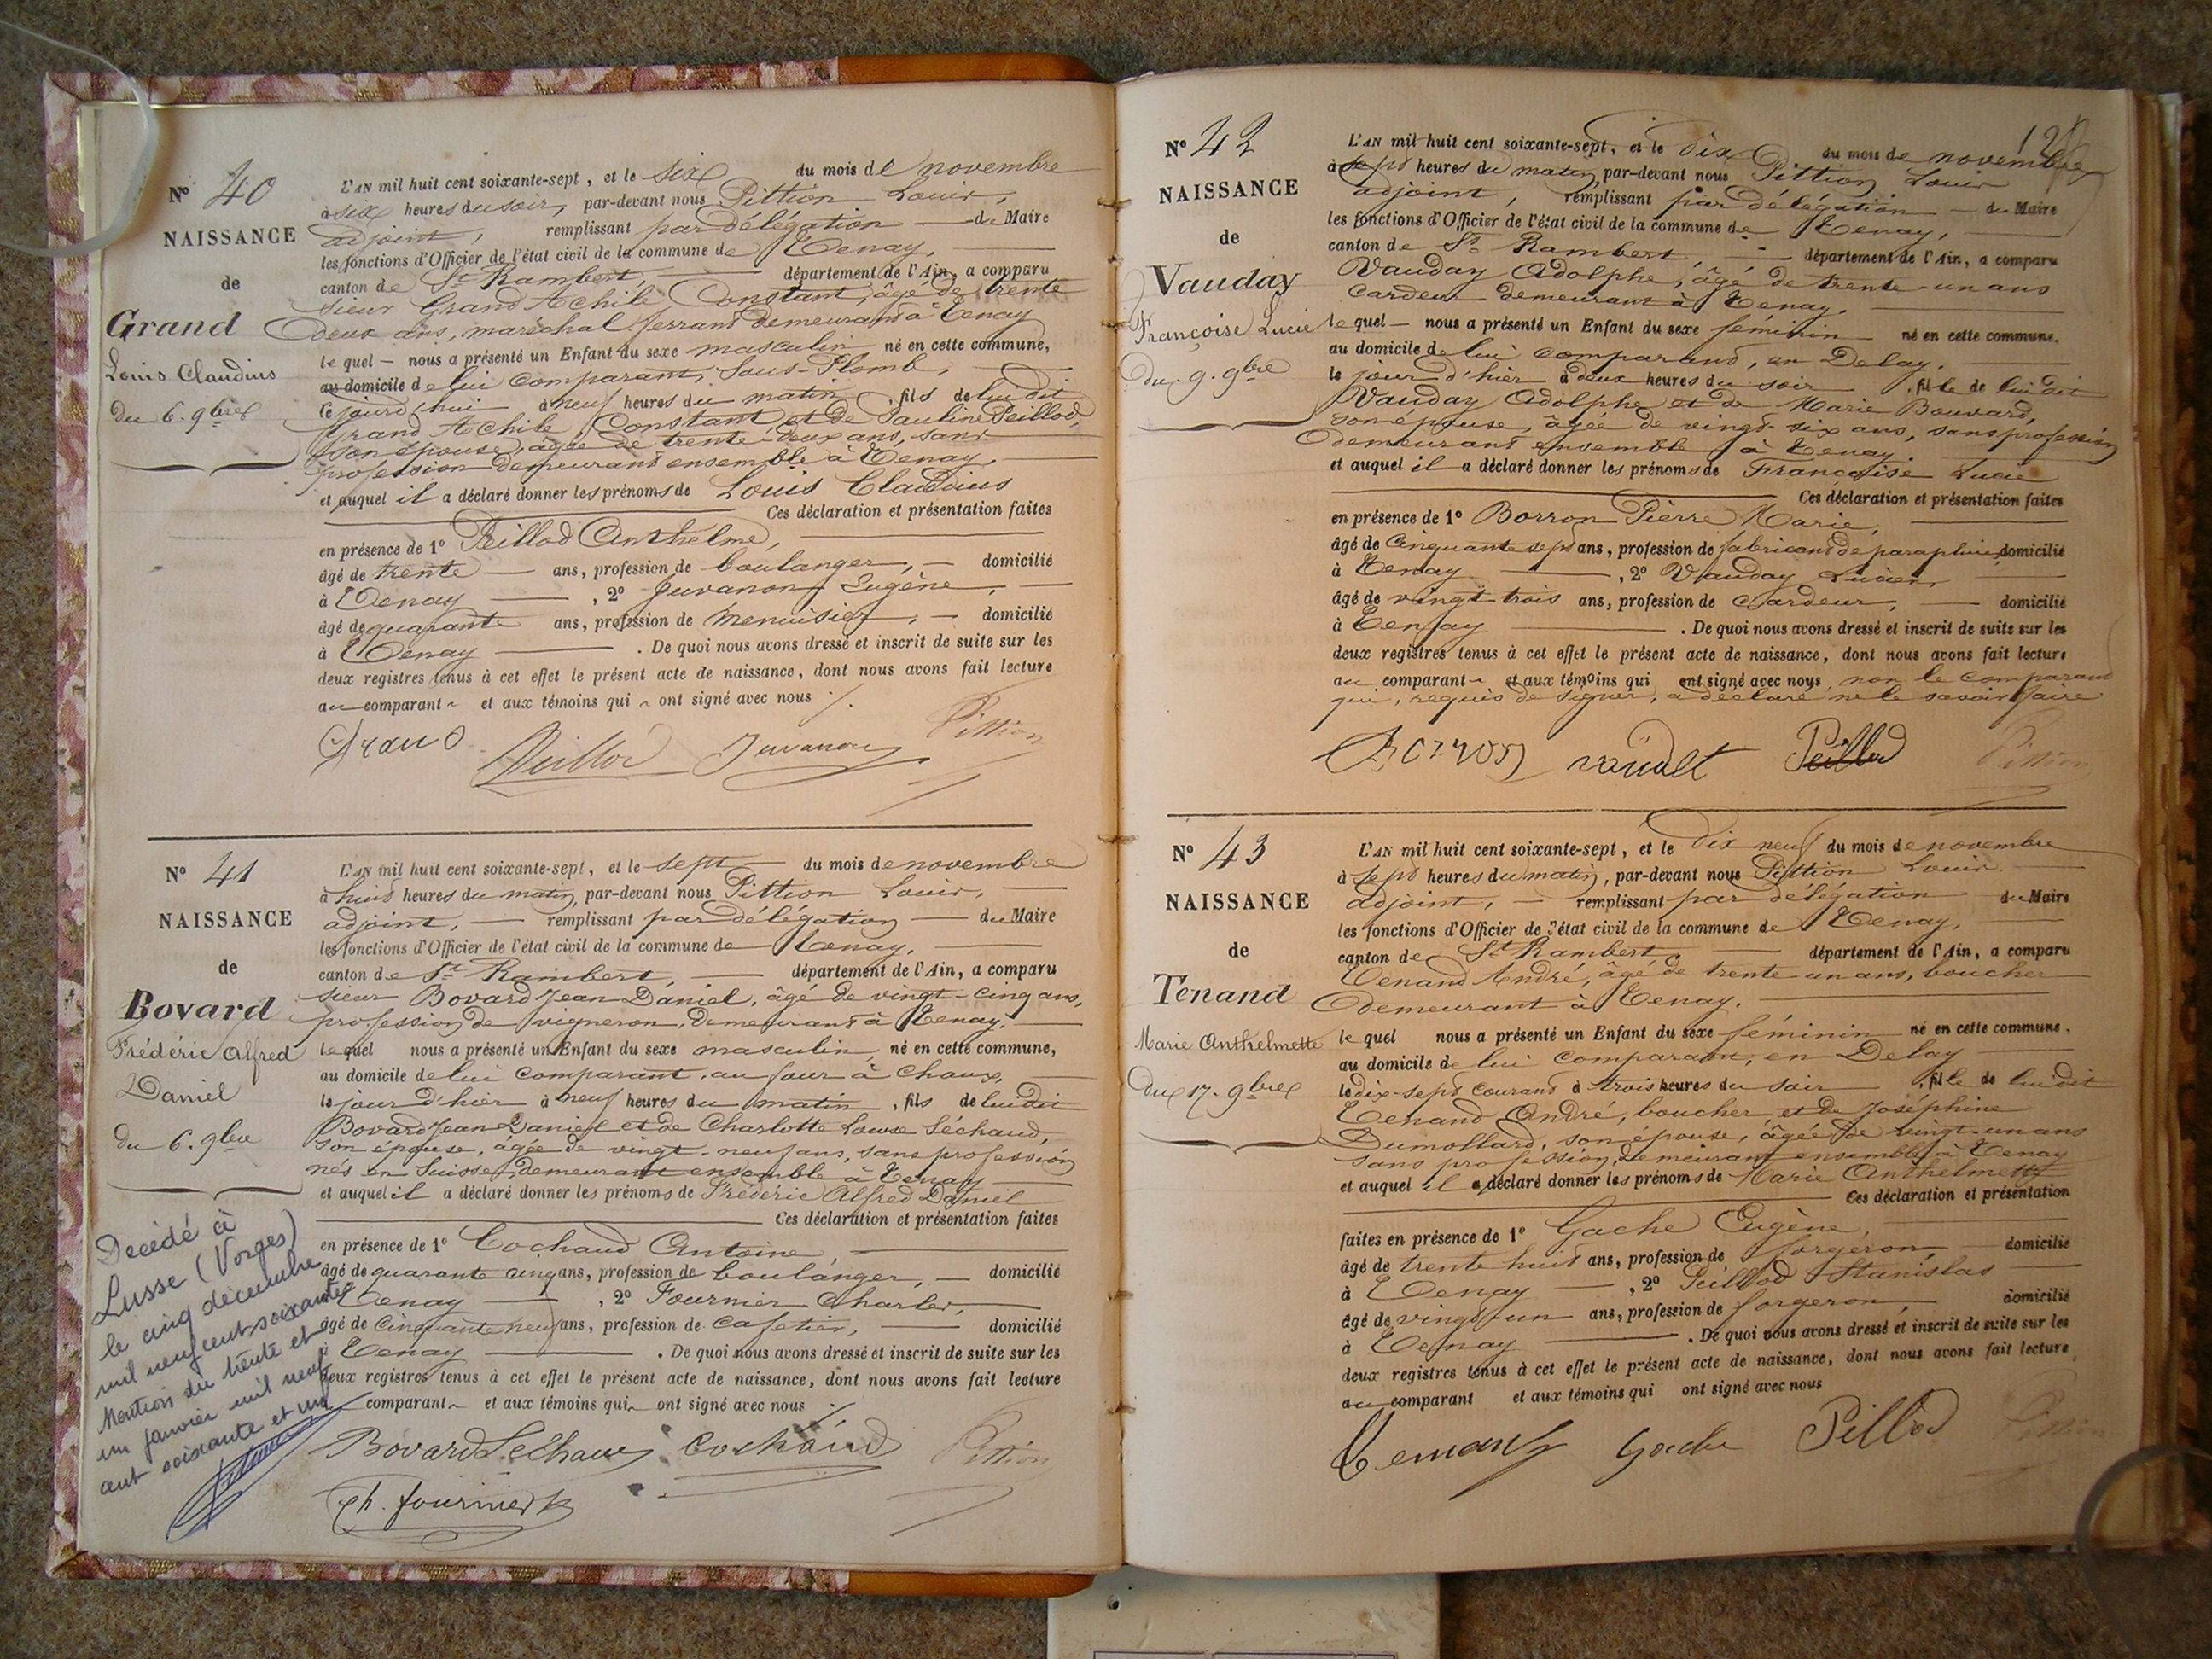 N° 40
NAISSANCE
de
Grand
Louis Claudius
du 6. 9bre
L'AN mil huit cent soixante-sept, et le six du mois de novembre
à six heures du soir, par-devant nous Pittion Louis,
adjoint, remplissant par délégation du Maire
les fonctions d'Officier de l'état civil de la commune de Tenay,
canton de St Rambert, département de l'Ain, a comparu
sieur Grand Achile Constant, âgé de trente
deux ans, maréchal ferrant demeurant à Tenay
lequel nous a présenté un Enfant du sexe masculin né en cette commune,
au domicile de lui comparant, Sous-Plomb,
le jourd'hui à neuf heures du matin, fils de lui dit
Grand Achile Constant et de Pauline Peillod,
son épouse, âgée de trente-deux ans, sans
profession demeurant ensemble à Tenay,
et auquel il a déclaré donner les prénoms de Louis Claudius
Ces déclaration et présentation faites
en présence de 1° Peillod Anthelme,
âgé de trente ans, profession de boulanger, domicilié
à Tenay, 2° Juvanon Eugène,
âgé de quarante ans, profession de menuisier, domicilié
à Tenay. De quoi nous avons dressé et inscrit de suite sur les
deux registres tenus à cet effet le présent acte de naissance, dont nous avons fait lecture
au comparant et aux témoins qui ont signé avec nous
Grand Peillod Juvanon Pittion
N° 41
NAISSANCE
de
Bovard
Frédéric Alfred
Daniel
du 6. 9bre
L'AN mil huit cent soixante-sept, et le sept du mois de novembre
à huit heures du matin, par-devant nous Pittion Louis,
adjoint, remplissant par délégation du Maire
les fonctions d'Officier de l'état civil de la commune de Tenay,
canton de St Rambert, département de l'Ain, a comparu
sieur Bovard Jean Daniel, âgé de vingt-cinq ans,
profession de vigneron, demeurant à Tenay.
lequel nous a présenté un Enfant du sexe masculin né en cette commune,
au domicile de lui comparant, au four à chaux,
le jour d'hier à neuf heures du matin, fils de lui dit
Bovard Jean Daniel et de Charlotte Louise Séchaud,
son épouse, âgée de vingt-neuf ans, sans profession
nés en Suisse, demeurant ensemble à Tenay
et auquel il a déclaré donner les prénoms de Frédéric Alfred Daniel
Ces déclaration et présentation faites
en présence de 1° Cochaud Antoine
âgé de quarante cinq ans, profession de boulanger, domicilié
à Tenay, 2° Fournier Charles,
âgé de cinquante neuf ans, profession de cafetier, domicilié
à Tenay. De quoi nous avons dressé et inscrit de suite sur les
deux registres tenus à cet effet le présent acte de naissance, dont nous avons fait lecture
comparant et aux témoins qui ont signé avec nous
Bovard Séchaud Cochaud Pittion
Ch. Fournier
Decédé à
Lusse (Vosges)
le cinq décembre
mil neuf cent soixante
Mention du trente et
un janvier mil neuf
cent soixante et un
N° 42
NAISSANCE
de
Vauday
Françoise Lucie
du 9. 9bre
L'AN mil huit cent soixante-sept, et le dix du mois de novembre
à sept heures du matin, par-devant nous Pittion Louis
adjoint, remplissant par délégation du Maire
les fonctions d'Officier de l'état civil de la commune de Tenay,
canton de St Rambert, département de l'Ain, a comparu
Vauday Adolphe, âgé de trente-un ans
cardeur demeurant à Tenay,
lequel nous a présenté un Enfant du sexe féminin né en cette commune.
au domicile de lui comparant, en Delay.
le jour d'hier à deux heures du soir, fille de lui dit
Vauday Adolphe et de Marie Bouvard,
son épouse, âgée de vingt-six ans, sans profession
demeurant ensemble à Tenay
et auquel il a déclaré donner les prénoms de Françoise Lucie
Ces déclaration et présentation faites
en présence de 1° Borron Pierre Marie,
âgé de cinquante sept ans, profession de fabricant de parapluie, domicilié
à Tenay, 2° Vauday Lucien
âgé de vingt-trois ans, profession de cardeur, domicilié
à Tenay. De quoi nous avons dressé et inscrit de suite sur les
deux registres tenus à cet effet le présent acte de naissance, dont nous avons fait lecture
au comparant et aux témoins qui ont signé avec nous non le comparant
qui, requis de signer, a déclaré ne le savoir faire
Borron Peillod Pittion
N° 43
NAISSANCE
de
Tenand
Marie Anthelmette
du 17. 9bre
L'AN mil huit cent soixante-sept, et le dix neuf du mois de novembre
à sept heures du matin, par-devant nous Pittion Louis
adjoint, remplissant par délégation du Maire
les fonctions d'Officier de l'état civil de la commune de Tenay,
canton de St Rambert, département de l'Ain, a comparu
Tenand André, âgé de trente un ans, boucher
demeurant à Tenay.
lequel nous a présenté un Enfant du sexe féminin né en cette commune,
au domicile de lui comparant, en Delay
le dix-sept courant à trois heures du soir, fille de lui dit
Tenand André, boucher et de Joséphine
Dumollard, son épouse, âgée de vingt-un ans
sans profession, demeurant ensemble à Tenay
et auquel il a déclaré donner les prénoms de Marie Anthelmette
Ces déclaration et présentation
faites en présence de 1° Gache Eugène,
âgé de trente huit ans, profession de forgeron, domicilié
à Tenay, 2° Peillod Stanislas
âgé de vingt-un ans, profession de forgeron, domicilié
à Tenay. De quoi nous avons dressé et inscrit de suite sur les
deux registres tenus à cet effet le présent acte de naissance, dont nous avons fait lecture
au comparant et aux témoins qui ont signé avec nous
Tenand Gache Pillod Pittion